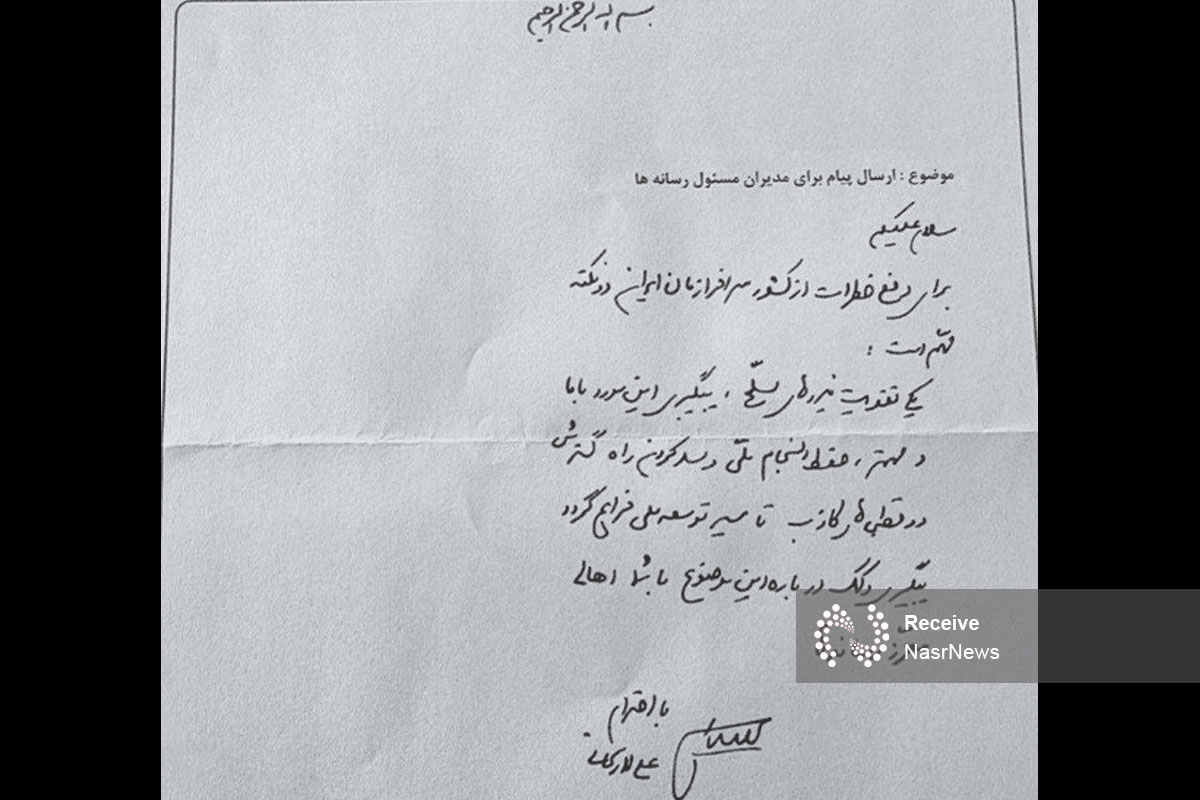 بسم الله الرحمن الرحیم
موضوع : ارسال پیام برای مدیران مسئول رسانه ها
سلام علیکم
برای رفع خطرات از کشور سرافرازمان ایران دو نکته
مهّم است :
یکی تقویت نیروهای مسلّح ، پیگیری این مورد با ما
و مهمتر ، حفظ انسجام ملّی و سد کردن راه گسترش
دو قطبی‌های کاذب تا مسیر توسعه ملی فراهم گردد
پیگیری و کمک درباره این موضوع با شما اهالی
Receive
NasrNews
با احترام
علی لاریجانی